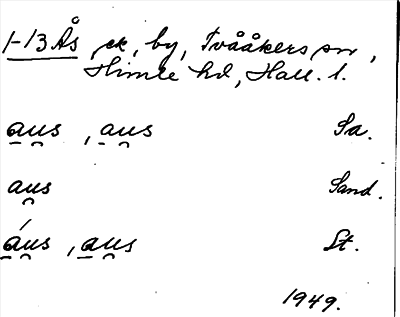 1-13 Ås, ek, by, Tvååkers sn,
Himle hd, Hall. l.
aus, aus Sa.
aus Sand.
áus, aus St.
1949.